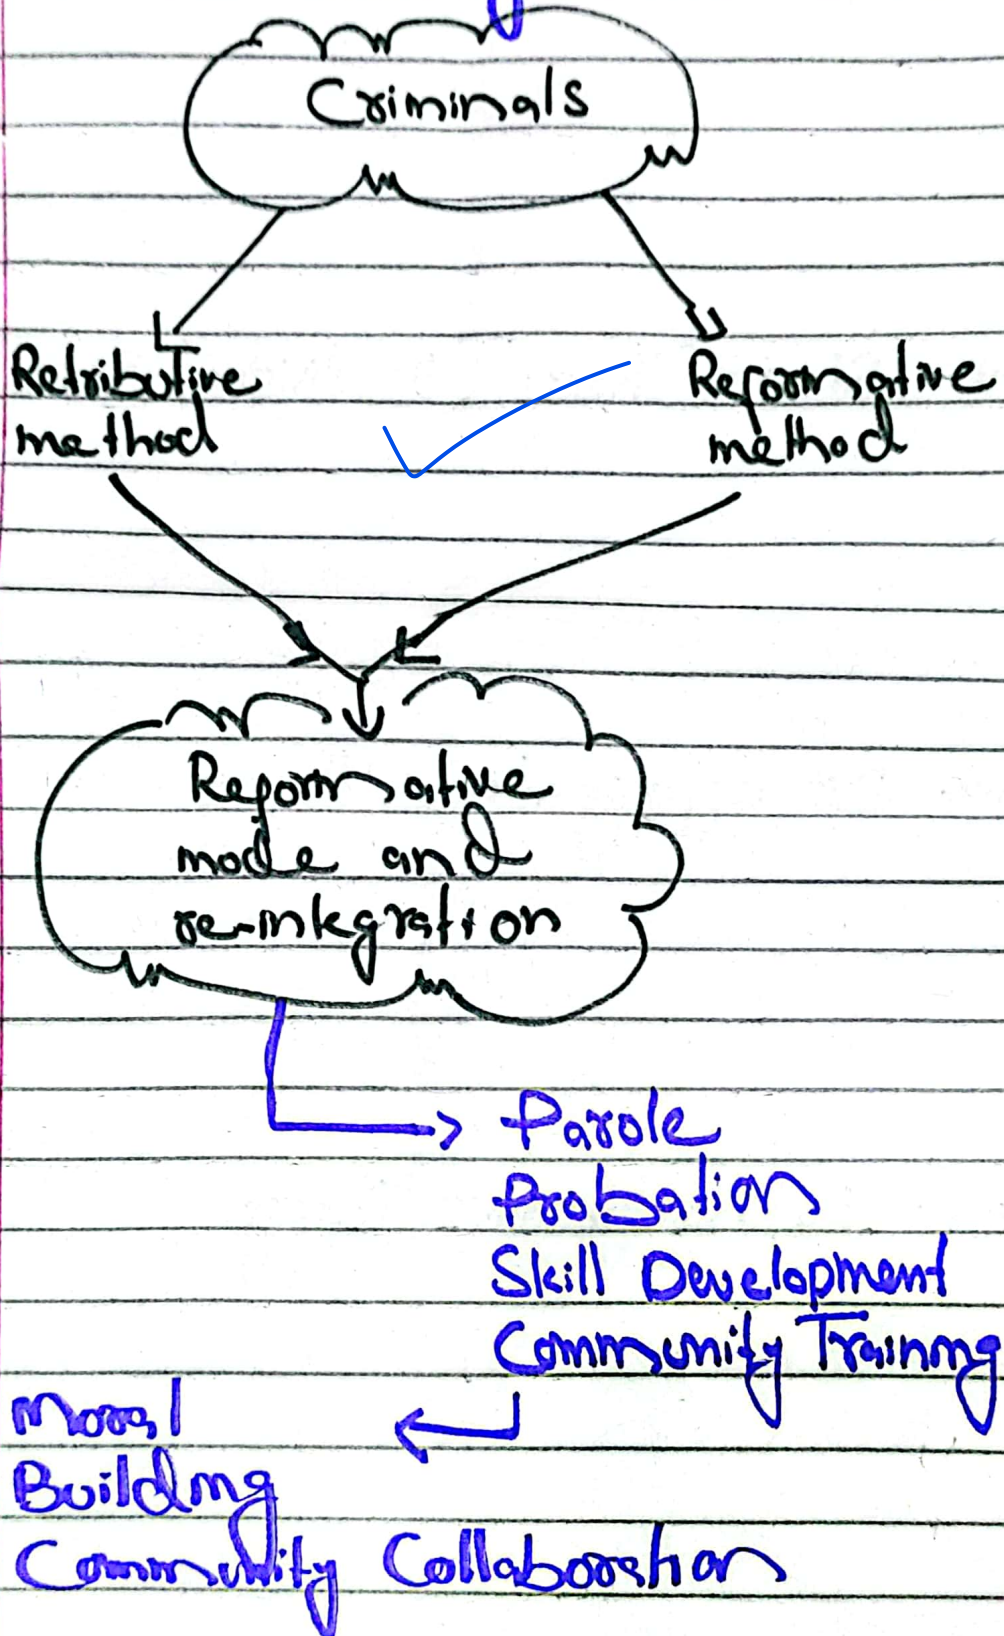 Criminals
Retributive
method
Reformative
method
Reformative
mode and
re-integration
Parole
Probation
Skill Development
Community Training
Moral
Building
Community Collaboration